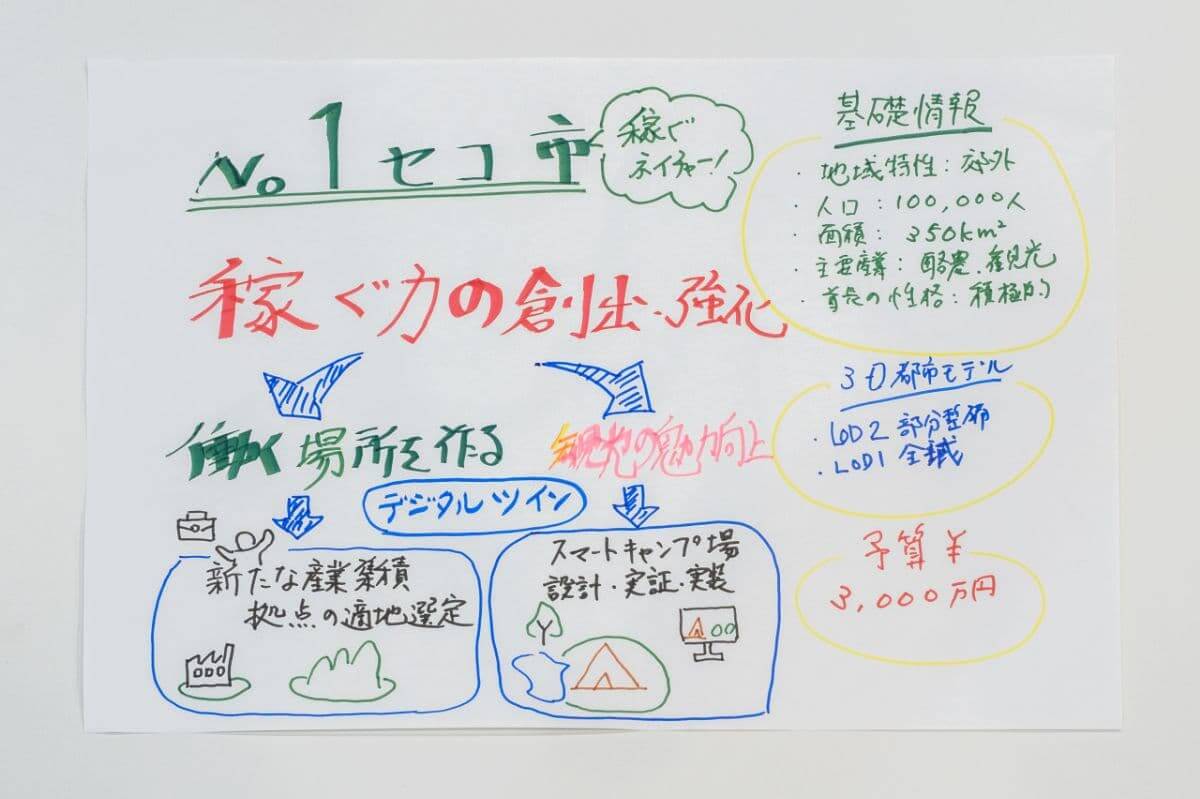 No.1セコ市
稼ぐ
ネイチャー!
稼ぐ力の創出・強化
働く場所を作る
観光の魅力向上
デジタルツイン
新たな産業集積
拠点の適地選定
スマートキャンプ場
設計・実証・実装
基礎情報
・地域特性:郊外
・人口:100,000人
・面積:350km²
・主要産業:酪農、観光
・首長の性格:積極的
3D都市モデル
・LOD2 部分整備
・LOD1 全域
予算¥
3,000万円